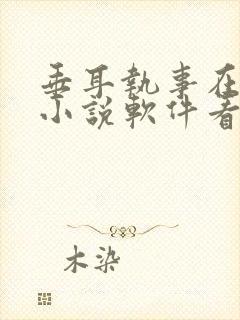 垂耳執事在
小說軟件看
木染